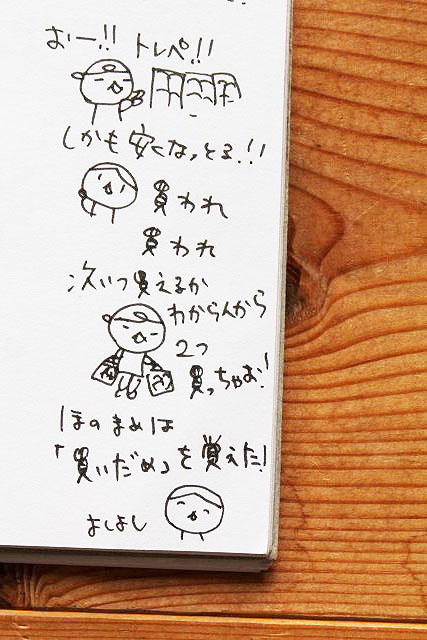 おー!! トレペ!!
しかも安くなっとる!!
買われ
買われ
次いつ買えるか
わからんから
2つ
買っちゃお!
ほのまめは
「買いだめ」を覚えた!
よしよし